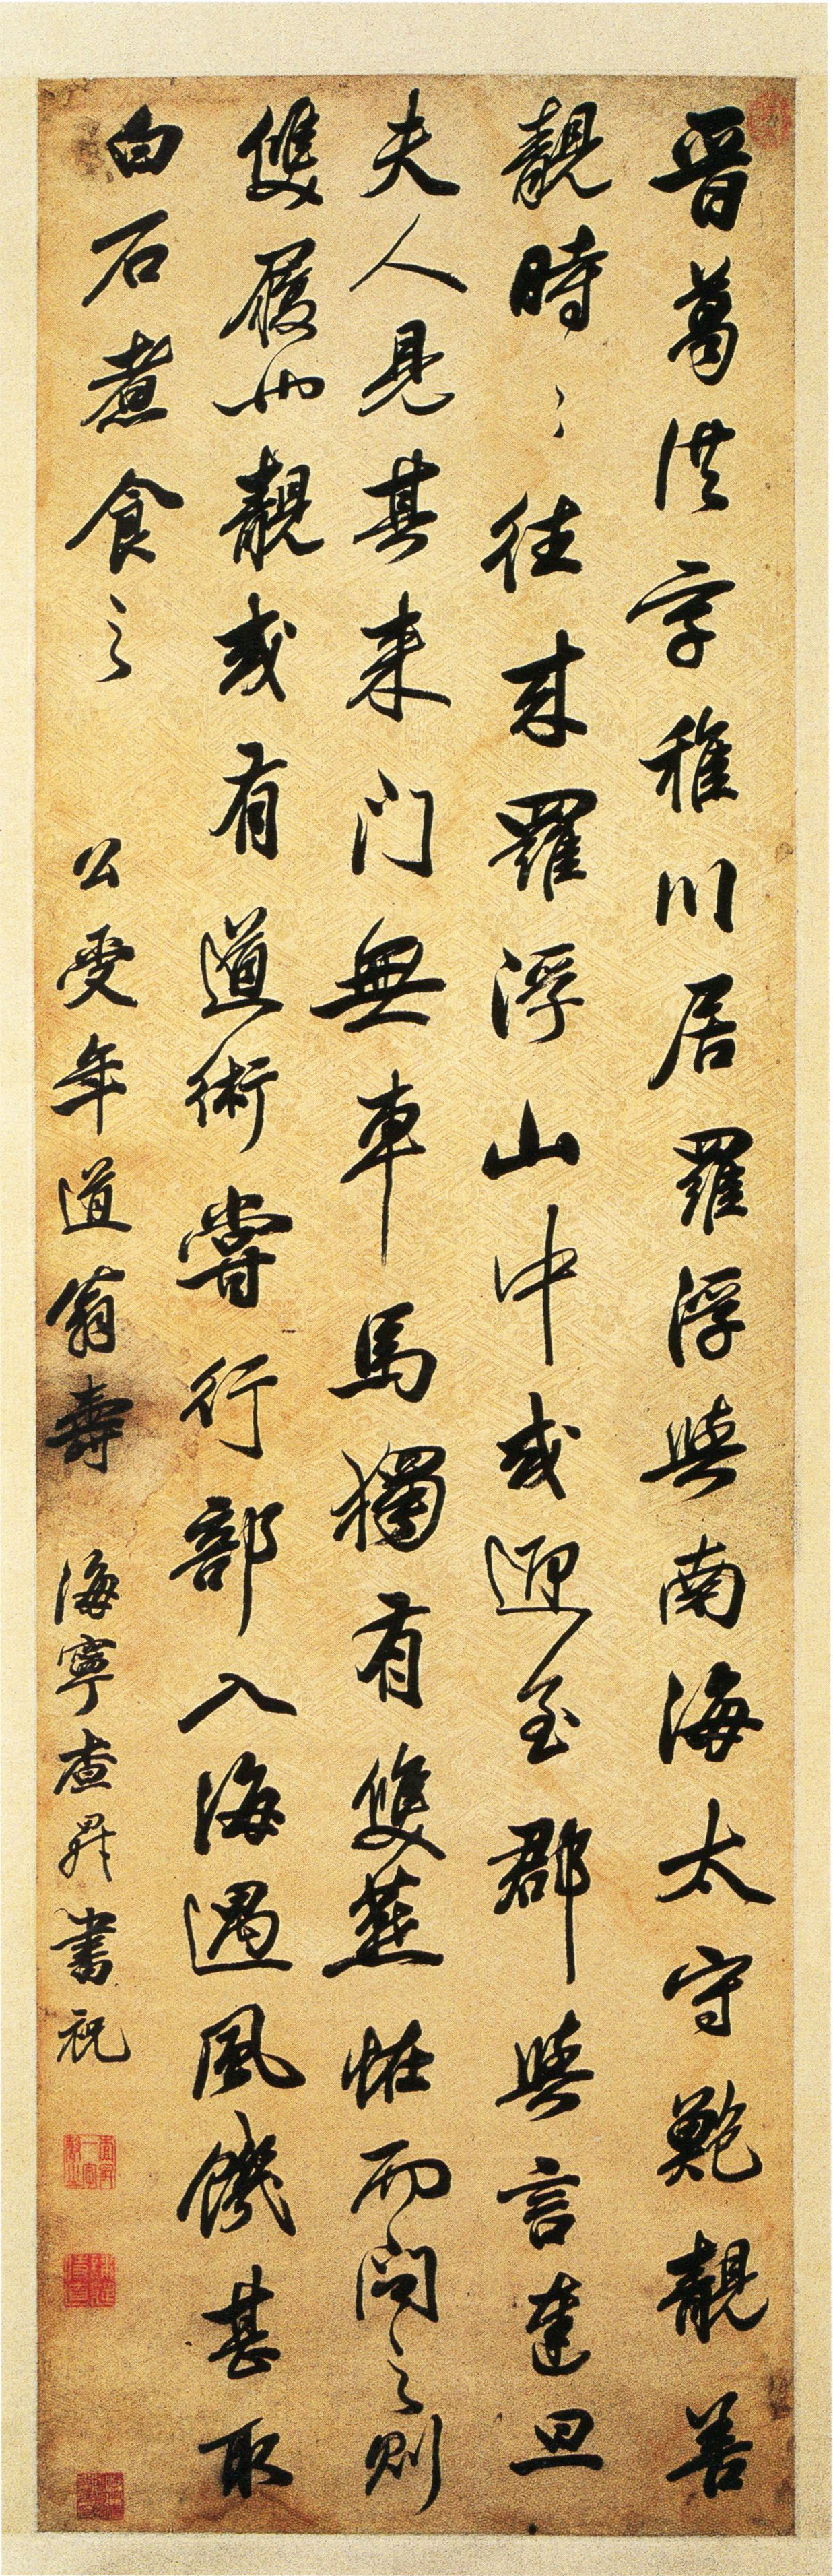 晉葛洪字稚川居羅浮與南海太守鮑靚善
靚時〻往來羅浮山中或迎至郡與言達旦
夫人見其來門無車馬獨有雙燕恠而問之則
雙履也靚或有道術嘗行部入海遇風饑甚取
白石煮食之 公受年道翁壽 海寧查昇書祝